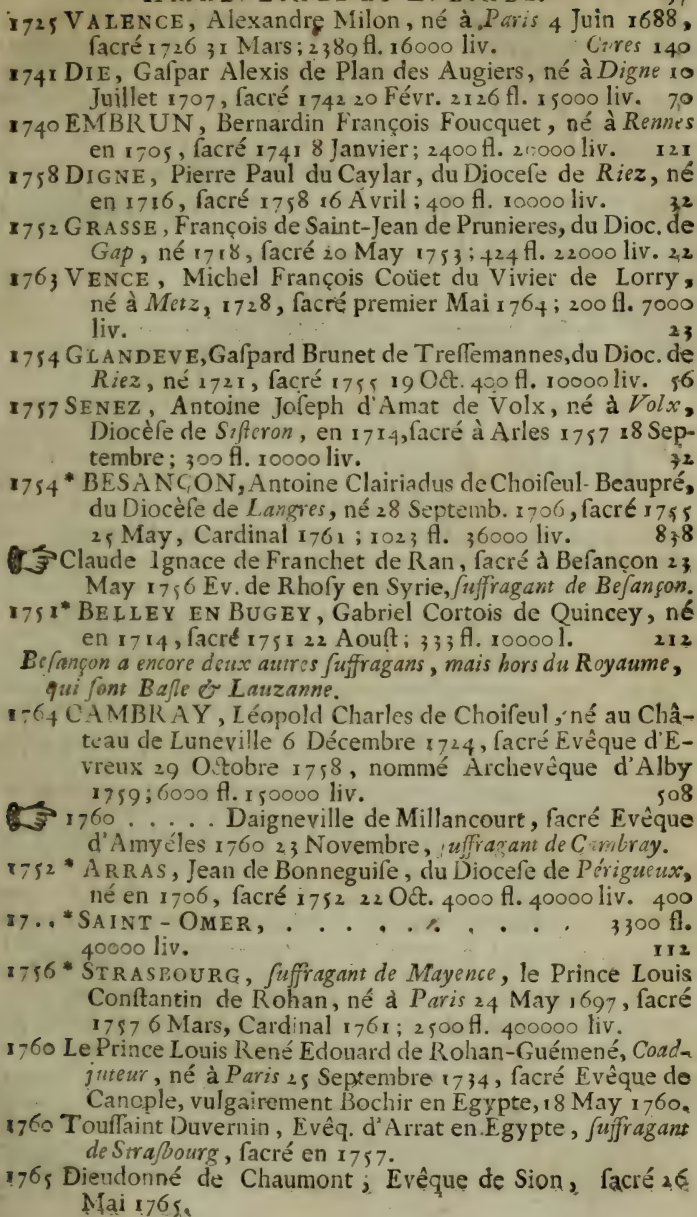 1725 VALENCE, Alexandre Milon, né à Paris 4 Juin 1688,
ſacré 1726 31 Mars; 2389 fl. 16000 liv. Cures 140
1741 DIE, Gaſpar Alexis de Plan des Augiers, né à Digne 10
Juillet 1707, ſacré 1742 20 Févr. 2126 fl. 15000 liv. 70
1740 EMBRUN, Bernardin François Foucquet, né à Rennes
en 1705, ſacré 1741 8 Janvier; 2400 fl. 20000 liv. 121
1758 DIGNE, Pierre Paul du Caylar, du Dioceſe de Riez, né
en 1716, ſacré 1758 16 Avril; 400 fl. 10000 liv. 32
1752 GRASSE, François de Saint-Jean de Prunieres, du Dioc. de
Gap, né 1718, ſacré 20 May 1753; 424 fl. 22000 liv. 22
1763 VENCE, Michel François Coüet du Vivier de Lorry,
né à Metz, 1728, ſacré premier Mai 1764; 200 fl. 7000
liv. 23
1754 GLANDEVE, Gaſpard Brunet de Treſſemannes, du Dioc. de
Riez, né 1721, ſacré 1755 19 Oct. 400 fl. 10000 liv. 56
1757 SENEZ, Antoine Joſeph d'Amat de Volx, né à Volx,
Diocèſe de Siſteron, en 1714, ſacré à Arles 1757 18 Sep-
tembre; 300 fl. 10000 liv. 32
1754 * BESANÇON, Antoine Clairiadus de Choiſeul-Beaupré,
du Diocèſe de Langres, né 28 Septemb. 1706, ſacré 1755
25 May, Cardinal 1761; 1023 fl. 36000 liv. 838
☞ Claude Ignace de Franchet de Ran, ſacré à Beſançon 23
May 1756 Ev. de Rhoſy en Syrie, ſuffragant de Beſançon.
1751 * BELLEY EN BUGEY, Gabriel Cortois de Quincey, né
en 1714, ſacré 1751 22 Aouſt; 333 fl. 10000 l. 212
Beſançon a encore deux autres ſuffragans, mais hors du Royaume,
qui ſont Baſle & Lauzanne.
1764 CAMBRAY, Léopold Charles de Choiſeul, né au Châ-
teau de Luneville 6 Décembre 1724, ſacré Evêque d'E-
vreux 29 Octobre 1758, nommé Archevêque d'Alby
1759; 6000 fl. 150000 liv. 508
☞ 1760 . . . . . Daigneville de Millancourt, ſacré Evêque
d'Amyéles 1760 23 Novembre, ſuffragant de Cambray.
1752 * ARRAS, Jean de Bonneguiſe, du Dioceſe de Périgueux,
né en 1706, ſacré 1752 22 Oct. 4000 fl. 40000 liv. 400
17.. * SAINT-OMER, . . . . . . . . . 3300 fl.
40000 liv. 112
1756 * STRASBOURG, ſuffragant de Mayence, le Prince Louis
Conſtantin de Rohan, né à Paris 24 May 1697, ſacré
1757 6 Mars, Cardinal 1761; 2500 fl. 400000 liv.
1760 Le Prince Louis René Edouard de Rohan-Guémené, Coad-
juteur, né à Paris 25 Septembre 1734, ſacré Evêque de
Canople, vulgairement Bochir en Egypte, 18 May 1760.
1760 Touſſaint Duvernin, Evêq. d'Arrat en Egypte, ſuffragant
de Straſbourg, ſacré en 1757.
1765 Dieudonné de Chaumont; Evêque de Sion, ſacré 26
Mai 1765.